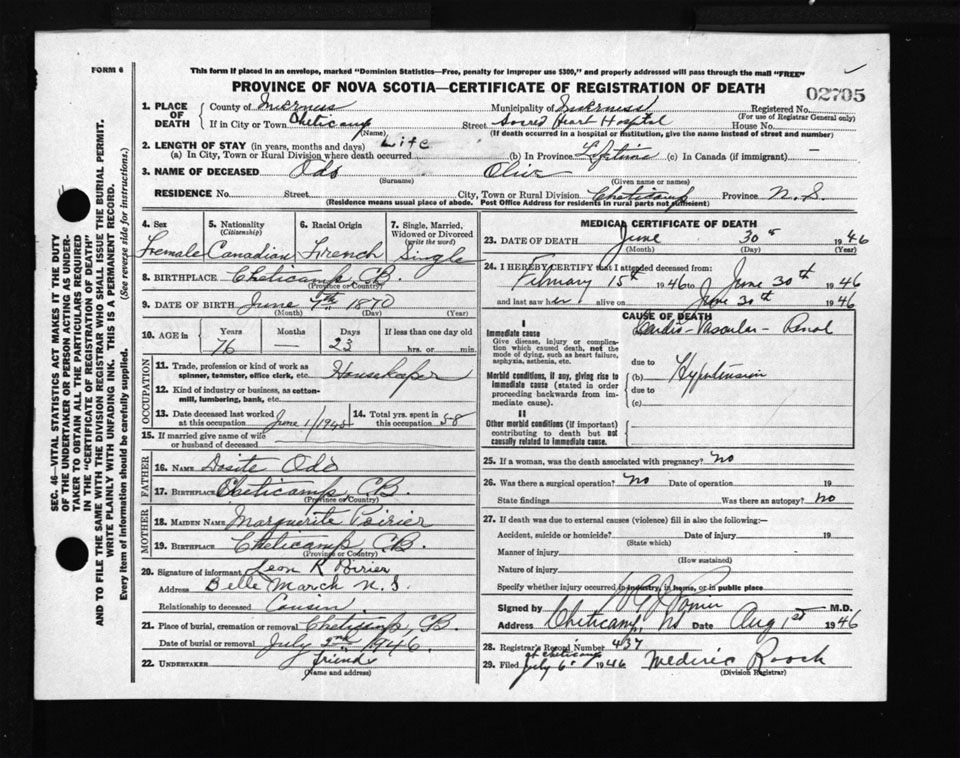 FORM 6
This form if placed in an envelope, marked "Dominion Statistics—Free, penalty for improper use $300," and properly addressed will pass through the mail "FREE"
PROVINCE OF NOVA SCOTIA—CERTIFICATE OF REGISTRATION OF DEATH
02705
1. PLACE OF DEATH
County of Inverness Municipality of Inverness Registered No.
(For use of Registrar General only)
If in City or Town Cheticamp Street Sacred Heart Hospital House No.
(Name) (If death occurred in a hospital or institution, give the name instead of street and number)
2. LENGTH OF STAY (in years, months and days) Life
(a) In City, Town or Rural Division where death occurred (b) In Province Lifetime (c) In Canada (if immigrant) —
3. NAME OF DECEASED Odo Olive
(Surname) (Given name or names)
RESIDENCE No. Street City, Town or Rural Division Cheticamp Province N.S.
(Residence means usual place of abode. Post Office Address for residents in rural parts not sufficient)
4. Sex 5. Nationality (Citizenship) 6. Racial Origin 7. Single, Married, Widowed or Divorced (write the word)
Female Canadian French Single
8. BIRTHPLACE Cheticamp C.B.
(Province or Country)
9. DATE OF BIRTH June 7th 1870
(Month) (Day) (Year)
10. AGE in Years Months Days If less than one day old
76 — 23 hrs. or min.
OCCUPATION
11. Trade, profession or kind of work as spinner, teamster, office clerk, etc. Housekeper
12. Kind of industry or business, as cotton-mill, lumbering, bank, etc.
13. Date deceased last worked at this occupation June 1/1945 14. Total yrs. spent in this occupation 58
15. If married give name of wife or husband of deceased
FATHER
16. NAME Dosite Odo
17. BIRTHPLACE Cheticamp, C.B.
(Province or Country)
MOTHER
18. MAIDEN NAME Marguerite Poirier
19. BIRTHPLACE Cheticamp C.B.
(Province or Country)
20. Signature of informant Leon R Poirier
Address Belle March N.S.
Relationship to deceased Cousin
21. Place of burial, cremation or removal Cheticamp, C.B.
Date of burial or removal July 2nd 1946.
22. UNDERTAKER friends
(Name and address)
MEDICAL CERTIFICATE OF DEATH
23. DATE OF DEATH June 30 1946
(Month) (Day) (Year)
24. I HEREBY CERTIFY that I attended deceased from:
February 15th 1946 to June 30th 1946
and last saw her alive on June 30th 1946
CAUSE OF DEATH
I
Immediate cause Cardio-Vascular-Renal
Give disease, injury or complication which caused death, not the mode of dying, such as heart failure, asphyxia, asthenia, etc.
due to
Morbid conditions, if any, giving rise to immediate cause (stated in order proceeding backwards from immediate cause).
(b) Hypertension
due to
(c)
II
Other morbid conditions (if important) contributing to death but not causally related to immediate cause.
25. If a woman, was the death associated with pregnancy? No
26. Was there a surgical operation? No Date of operation 19
State findings Was there an autopsy? No
27. If death was due to external causes (violence) fill in also the following:—
Accident, suicide or homicide? Date of injury 19
(State which)
Manner of injury
(How sustained)
Nature of injury
Specify whether injury occurred in industry, in home, or in public place
Signed by M.D.
Address Cheticamp, NS Date Aug 1st 1946
28. Registrar's Record Number 437
at Cheticamp
29. Filed July 6 1946 Wederic Roach
(Division Registrar)
SEC. 46—VITAL STATISTICS ACT MAKES IT THE DUTY
OF THE UNDERTAKER OR PERSON ACTING AS UNDER-
TAKER TO OBTAIN ALL THE PARTICULARS REQUIRED
IN THE "CERTIFICATE OF REGISTRATION OF DEATH"
AND TO FILE THE SAME WITH THE DIVISION REGISTRAR WHO SHALL ISSUE THE BURIAL PERMIT.
WRITE PLAINLY WITH UNFADING INK. THIS IS A PERMANENT RECORD.
Every item of information should be carefully supplied. (See reverse side for instructions.)